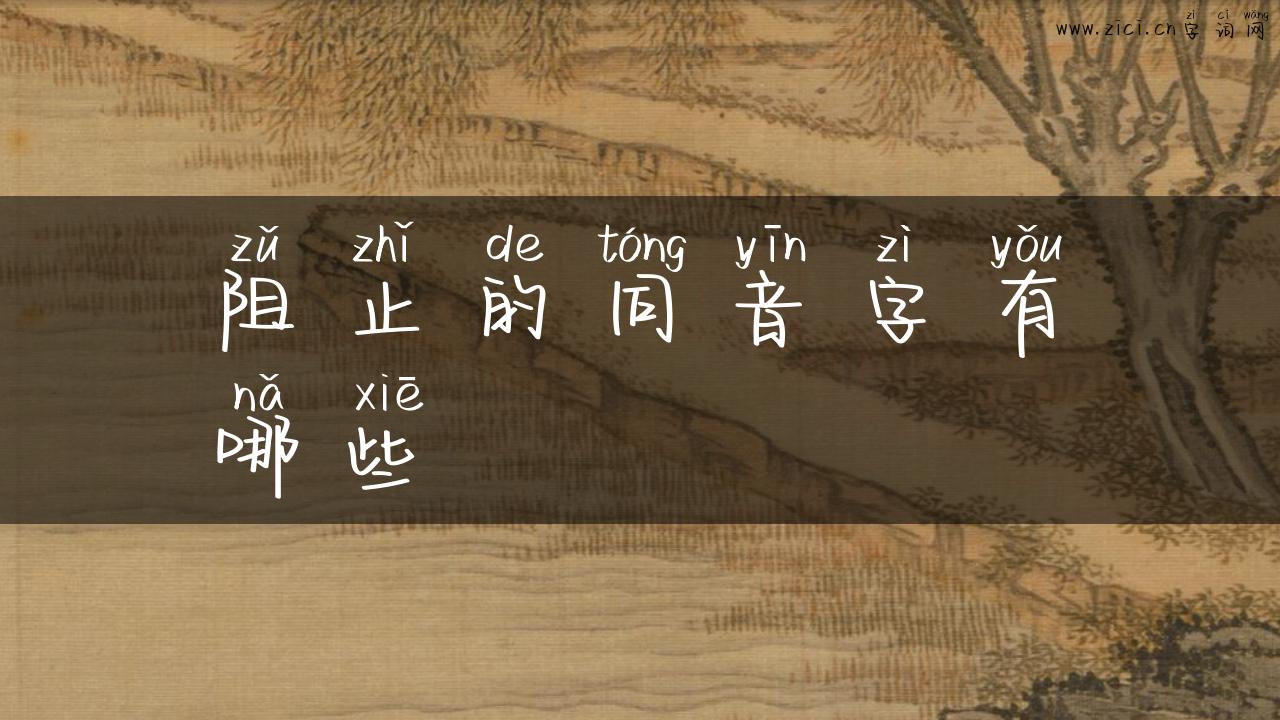 zì cí wǎng
www.zici.cn 字 词 网
zǔ zhǐ de tóng yīn zì yǒu
阻 止 的 同 音 字 有
nǎ xiē
哪 些